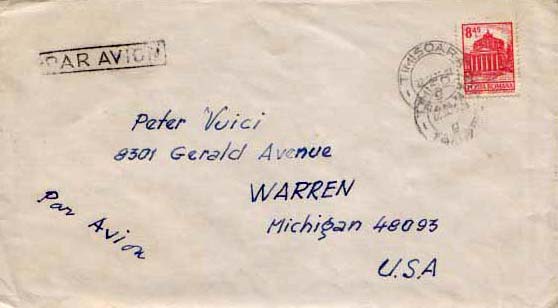 PAR AVION
8.45
POSTA ROMANA
TIMISOARA
Peter Vuici
8301 Gerald Avenue
WARREN
Michigan 48093
U.S.A
Par Avion